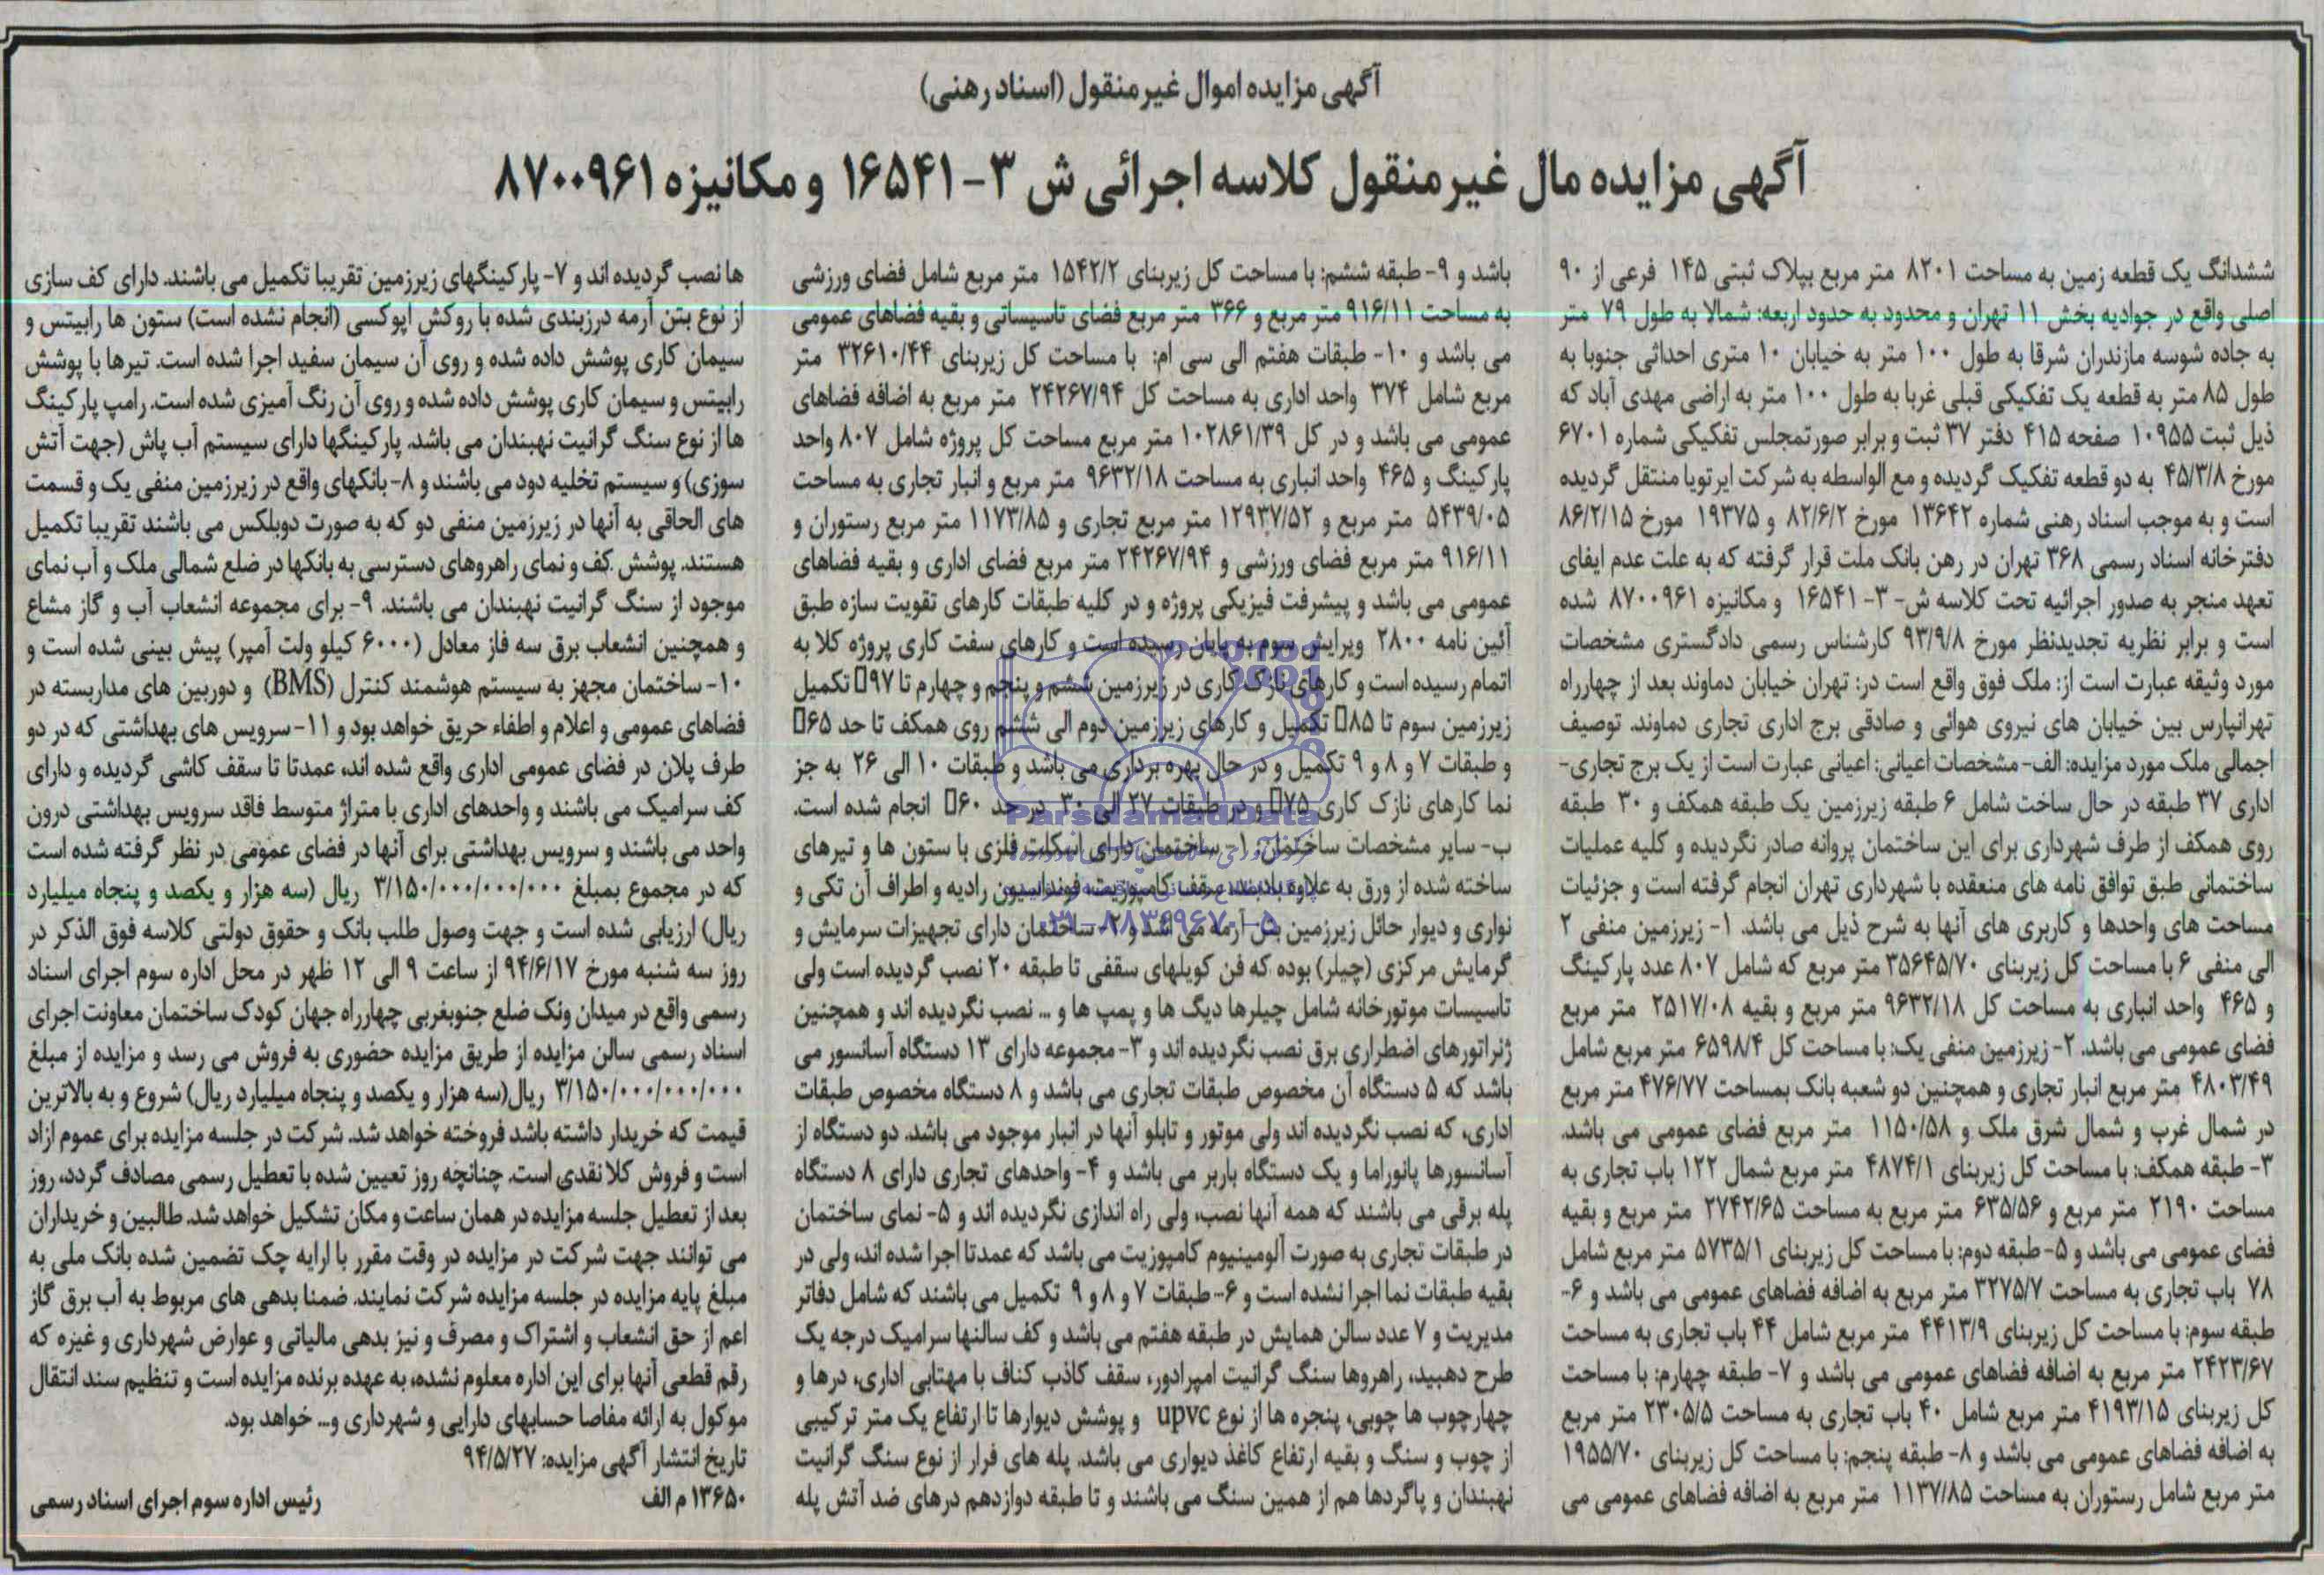 آگهی مزایده اموال غیرمنقول (اسناد رهنی)
آگهی مزایده مال غیرمنقول کلاسه اجرائی ش ۳- ۱۶۵۴۱ و مکانیزه ۸۷۰۰۹۶۱
ششدانگ یک قطعه زمین به مساحت ۸۲۰۱ متر مربع بپلاک ثبتی ۱۴۵ فرعی از ۹۰
اصلی واقع در جوادیه بخش ۱۱ تهران و محدود به حدود اربعه: شمالا به طول ۷۹ متر
به جاده شوسه مازندران شرقا به طول ۱۰۰ متر به خیابان ۱۰ متری احداثی جنوبا به
طول ۸۵ متر به قطعه یک تفکیکی قبلی غربا به طول ۱۰۰ متر به اراضی مهدی آباد که
ذیل ثبت ۱۰۹۵۵ صفحه ۴۱۵ دفتر ۳۷ ثبت و برابر صورتمجلس تفکیکی شماره ۶۷۰۱
مورخ ۴۵/۳/۸ به دو قطعه تفکیک گردیده و مع الواسطه به شرکت ایرتویا منتقل گردیده
است و به موجب اسناد رهنی شماره ۱۳۶۴۲ مورخ ۸۲/۶/۲ و ۱۹۳۷۵ مورخ ۸۶/۲/۱۵
دفترخانه اسناد رسمی ۳۶۸ تهران در رهن بانک ملت قرار گرفته که به علت عدم ایفای
تعهد منجر به صدور اجرائیه تحت کلاسه ش- ۳- ۱۶۵۴۱ و مکانیزه ۸۷۰۰۹۶۱ شده
است و برابر نظریه تجدیدنظر مورخ ۹۳/۹/۸ کارشناس رسمی دادگستری مشخصات
مورد وثیقه عبارت است از: ملک فوق واقع است در: تهران خیابان دماوند بعد از چهارراه
تهرانپارس بین خیابان های نیروی هوائی و صادقی برج اداری تجاری دماوند. توصیف
اجمالی ملک مورد مزایده: الف- مشخصات اعیانی: اعیانی عبارت است از یک برج تجاری-
اداری ۳۷ طبقه در حال ساخت شامل ۶ طبقه زیرزمین یک طبقه همکف و ۳۰ طبقه
روی همکف از طرف شهرداری برای این ساختمان پروانه صادر نگردیده و کلیه عملیات
ساختمانی طبق توافق نامه های منعقده با شهرداری تهران انجام گرفته است و جزئیات
مساحت های واحدها و کاربری های آنها به شرح ذیل می باشد. ۱- زیرزمین منفی ۲
الی منفی ۶ با مساحت کل زیربنای ۳۵۶۴۵/۷۰ متر مربع که شامل ۸۰۷ عدد پارکینگ
و ۴۶۵ واحد انباری به مساحت کل ۹۶۳۲/۱۸ متر مربع و بقیه ۲۵۱۷/۰۸ متر مربع
فضای عمومی می باشد. ۲- زیرزمین منفی یک: با مساحت کل ۶۵۹۸/۴ متر مربع شامل
۴۸۰۳/۴۹ متر مربع انبار تجاری و همچنین دو شعبه بانک بمساحت ۴۷۶/۷۷ متر مربع
در شمال غرب و شمال شرق ملک و ۱۱۵۰/۵۸ متر مربع فضای عمومی می باشد.
۳- طبقه همکف: با مساحت کل زیربنای ۴۸۷۴/۱ متر مربع شمال ۱۲۲ باب تجاری به
مساحت ۲۱۹۰ متر مربع و ۶۳۵/۵۶ متر مربع به مساحت ۲۷۴۲/۶۵ متر مربع و بقیه
فضای عمومی می باشد و ۵- طبقه دوم: با مساحت کل زیربنای ۵۷۳۵/۱ متر مربع شامل
۷۸ باب تجاری به مساحت ۳۲۷۵/۷ متر مربع به اضافه فضاهای عمومی می باشد و ۶-
طبقه سوم: با مساحت کل زیربنای ۴۴۱۳/۹ متر مربع شامل ۴۴ باب تجاری به مساحت
۲۴۲۳/۶۷ متر مربع به اضافه فضاهای عمومی می باشد و ۷- طبقه چهارم: با مساحت
کل زیربنای ۴۱۹۳/۱۵ متر مربع شامل ۴۰ باب تجاری به مساحت ۲۳۰۵/۵ متر مربع
به اضافه فضاهای عمومی می باشد و ۸- طبقه پنجم: با مساحت کل زیربنای ۱۹۵۵/۷۰
متر مربع شامل رستوران به مساحت ۱۱۳۷/۸۵ متر مربع به اضافه فضاهای عمومی می
باشد و ۹- طبقه ششم: با مساحت کل زیربنای ۱۵۴۲/۲ متر مربع شامل فضای ورزشی
به مساحت ۹۱۶/۱۱ متر مربع و ۳۶۶ متر مربع فضای تاسیساتی و بقیه فضاهای عمومی
می باشد و ۱۰- طبقات هفتم الی سی ام: با مساحت کل زیربنای ۳۲۶۱۰/۴۴ متر
مربع شامل ۳۷۴ واحد اداری به مساحت کل ۲۴۲۶۷/۹۴ متر مربع به اضافه فضاهای
عمومی می باشد و در کل ۱۰۲۸۶۱/۳۹ متر مربع مساحت کل پروژه شامل ۸۰۷ واحد
پارکینگ و ۴۶۵ واحد انباری به مساحت ۹۶۳۲/۱۸ متر مربع و انبار تجاری به مساحت
۵۴۳۹/۰۵ متر مربع و ۱۲۹۳۷/۵۲ متر مربع تجاری و ۱۱۷۳/۸۵ متر مربع رستوران و
۹۱۶/۱۱ متر مربع فضای ورزشی و ۲۴۲۶۷/۹۴ متر مربع فضای اداری و بقیه فضاهای
عمومی می باشد و پیشرفت فیزیکی پروژه و در کلیه طبقات کارهای تقویت سازه طبق
آئین نامه ۲۸۰۰ ویرایش سوم به پایان رسیده است و کارهای سفت کاری پروژه کلا به
اتمام رسیده است و کارهای نازک کاری در زیرزمین ششم و پنجم و چهارم تا ۹۷ تکمیل
زیرزمین سوم تا ۸۵ تکمیل و کارهای زیرزمین دوم الی ششم روی همکف تا حد ۶۵
و طبقات ۷ و ۸ و ۹ تکمیل و در حال بهره برداری می باشد و طبقات ۱۰ الی ۲۶ به جز
نما کارهای نازک کاری ۷۵ و در طبقات ۲۷ الی ۳۰ در حد ۶۰ انجام شده است.
ب- سایر مشخصات ساختمان: ۱- ساختمان دارای اسکلت فلزی با ستون ها و تیرهای
ساخته شده از ورق به علاوه بادبند، سقف کامپوزیت، فونداسیون رادیه و اطراف آن تکی و
نواری و دیوار حائل زیرزمین بتن آرمه می باشد و ۲- ساختمان دارای تجهیزات سرمایش و
گرمایش مرکزی (چیلر) بوده که فن کویلهای سقفی تا طبقه ۲۰ نصب گردیده است ولی
تاسیسات موتورخانه شامل چیلرها دیگ ها و پمپ ها و ... نصب نگردیده اند و همچنین
ژنراتورهای اضطراری برق نصب نگردیده اند و ۳- مجموعه دارای ۱۳ دستگاه آسانسور می
باشد که ۵ دستگاه آن مخصوص طبقات تجاری می باشد و ۸ دستگاه مخصوص طبقات
اداری، که نصب نگردیده اند ولی موتور و تابلو آنها در انبار موجود می باشد. دو دستگاه از
آسانسورها پانوراما و یک دستگاه باربر می باشد و ۴- واحدهای تجاری دارای ۸ دستگاه
پله برقی می باشند که همه آنها نصب، ولی راه اندازی نگردیده اند و ۵- نمای ساختمان
در طبقات تجاری به صورت آلومینیوم کامپوزیت می باشد که عمدتا اجرا شده اند، ولی در
بقیه طبقات نما اجرا نشده است و ۶- طبقات ۷ و ۸ و ۹ تکمیل می باشند که شامل دفاتر
مدیریت و ۷ عدد سالن همایش در طبقه هفتم می باشد و کف سالنها سرامیک درجه یک
طرح دهبید، راهروها سنگ گرانیت امپرادور، سقف کاذب کناف با مهتابی اداری، درها و
چهارچوب ها چوبی، پنجره ها از نوع upvc و پوشش دیوارها تا ارتفاع یک متر ترکیبی
از چوب و سنگ و بقیه ارتفاع کاغذ دیواری می باشد. پله های فرار از نوع سنگ گرانیت
نهبندان و پاگردها هم از همین سنگ می باشند و تا طبقه دوازدهم درهای ضد آتش پله
ها نصب گردیده اند و ۷- پارکینگهای زیرزمین تقریبا تکمیل می باشند. دارای کف سازی
از نوع بتن آرمه درزبندی شده با روکش اپوکسی (انجام نشده است) ستون ها رابیتس و
سیمان کاری پوشش داده شده و روی آن سیمان سفید اجرا شده است. تیرها با پوشش
رابیتس و سیمان کاری پوشش داده شده و روی آن رنگ آمیزی شده است. رامپ پارکینگ
ها از نوع سنگ گرانیت نهبندان می باشد. پارکینگها دارای سیستم آب پاش (جهت آتش
سوزی) و سیستم تخلیه دود می باشند و ۸- بانکهای واقع در زیرزمین منفی یک و قسمت
های الحاقی به آنها در زیرزمین منفی دو که به صورت دوبلکس می باشند تقریبا تکمیل
هستند. پوشش کف و نمای راهروهای دسترسی به بانکها در ضلع شمالی ملک و آب نمای
موجود از سنگ گرانیت نهبندان می باشند. ۹- برای مجموعه انشعاب آب و گاز مشاع
و همچنین انشعاب برق سه فاز معادل (۶۰۰۰ کیلو ولت آمپر) پیش بینی شده است و
۱۰- ساختمان مجهز به سیستم هوشمند کنترل (BMS) و دوربین های مداربسته در
فضاهای عمومی و اعلام و اطفاء حریق خواهد بود و ۱۱- سرویس های بهداشتی که در دو
طرف پلان در فضای عمومی اداری واقع شده اند، عمدتا تا سقف کاشی گردیده و دارای
کف سرامیک می باشند و واحدهای اداری با متراژ متوسط فاقد سرویس بهداشتی درون
واحد می باشند و سرویس بهداشتی برای آنها در فضای عمومی در نظر گرفته شده است
که در مجموع بمبلغ ۳/۱۵۰/۰۰۰/۰۰۰/۰۰۰ ریال (سه هزار و یکصد و پنجاه میلیارد
ریال) ارزیابی شده است و جهت وصول طلب بانک و حقوق دولتی کلاسه فوق الذکر در
روز سه شنبه مورخ ۹۴/۶/۱۷ از ساعت ۹ الی ۱۲ ظهر در محل اداره سوم اجرای اسناد
رسمی واقع در میدان ونک ضلع جنوبغربی چهارراه جهان کودک ساختمان معاونت اجرای
اسناد رسمی سالن مزایده از طریق مزایده حضوری به فروش می رسد و مزایده از مبلغ
۳/۱۵۰/۰۰۰/۰۰۰/۰۰۰ ریال(سه هزار و یکصد و پنجاه میلیارد ریال) شروع و به بالاترین
قیمت که خریدار داشته باشد فروخته خواهد شد. شرکت در جلسه مزایده برای عموم ازاد
است و فروش کلا نقدی است. چنانچه روز تعیین شده با تعطیل رسمی مصادف گردد، روز
بعد از تعطیل جلسه مزایده در همان ساعت و مکان تشکیل خواهد شد. طالبین و خریداران
می توانند جهت شرکت در مزایده در وقت مقرر با ارایه چک تضمین شده بانک ملی به
مبلغ پایه مزایده در جلسه مزایده شرکت نمایند. ضمنا بدهی های مربوط به آب برق گاز
اعم از حق انشعاب و اشتراک و مصرف و نیز بدهی مالیاتی و عوارض شهرداری و غیزه که
رقم قطعی آنها برای این اداره معلوم نشده، به عهده برنده مزایده است و تنظیم سند انتقال
موکول به ارائه مفاصا حسابهای دارایی و شهرداری و... خواهد بود.
تاریخ انتشار آگهی مزایده: ۹۴/۵/۲۷
۱۳۶۵۰ م الف
رئیس اداره سوم اجرای اسناد رسمی
ParsNamadData
۰۲۱-۸۸۳۴۹۶۷۰-۵